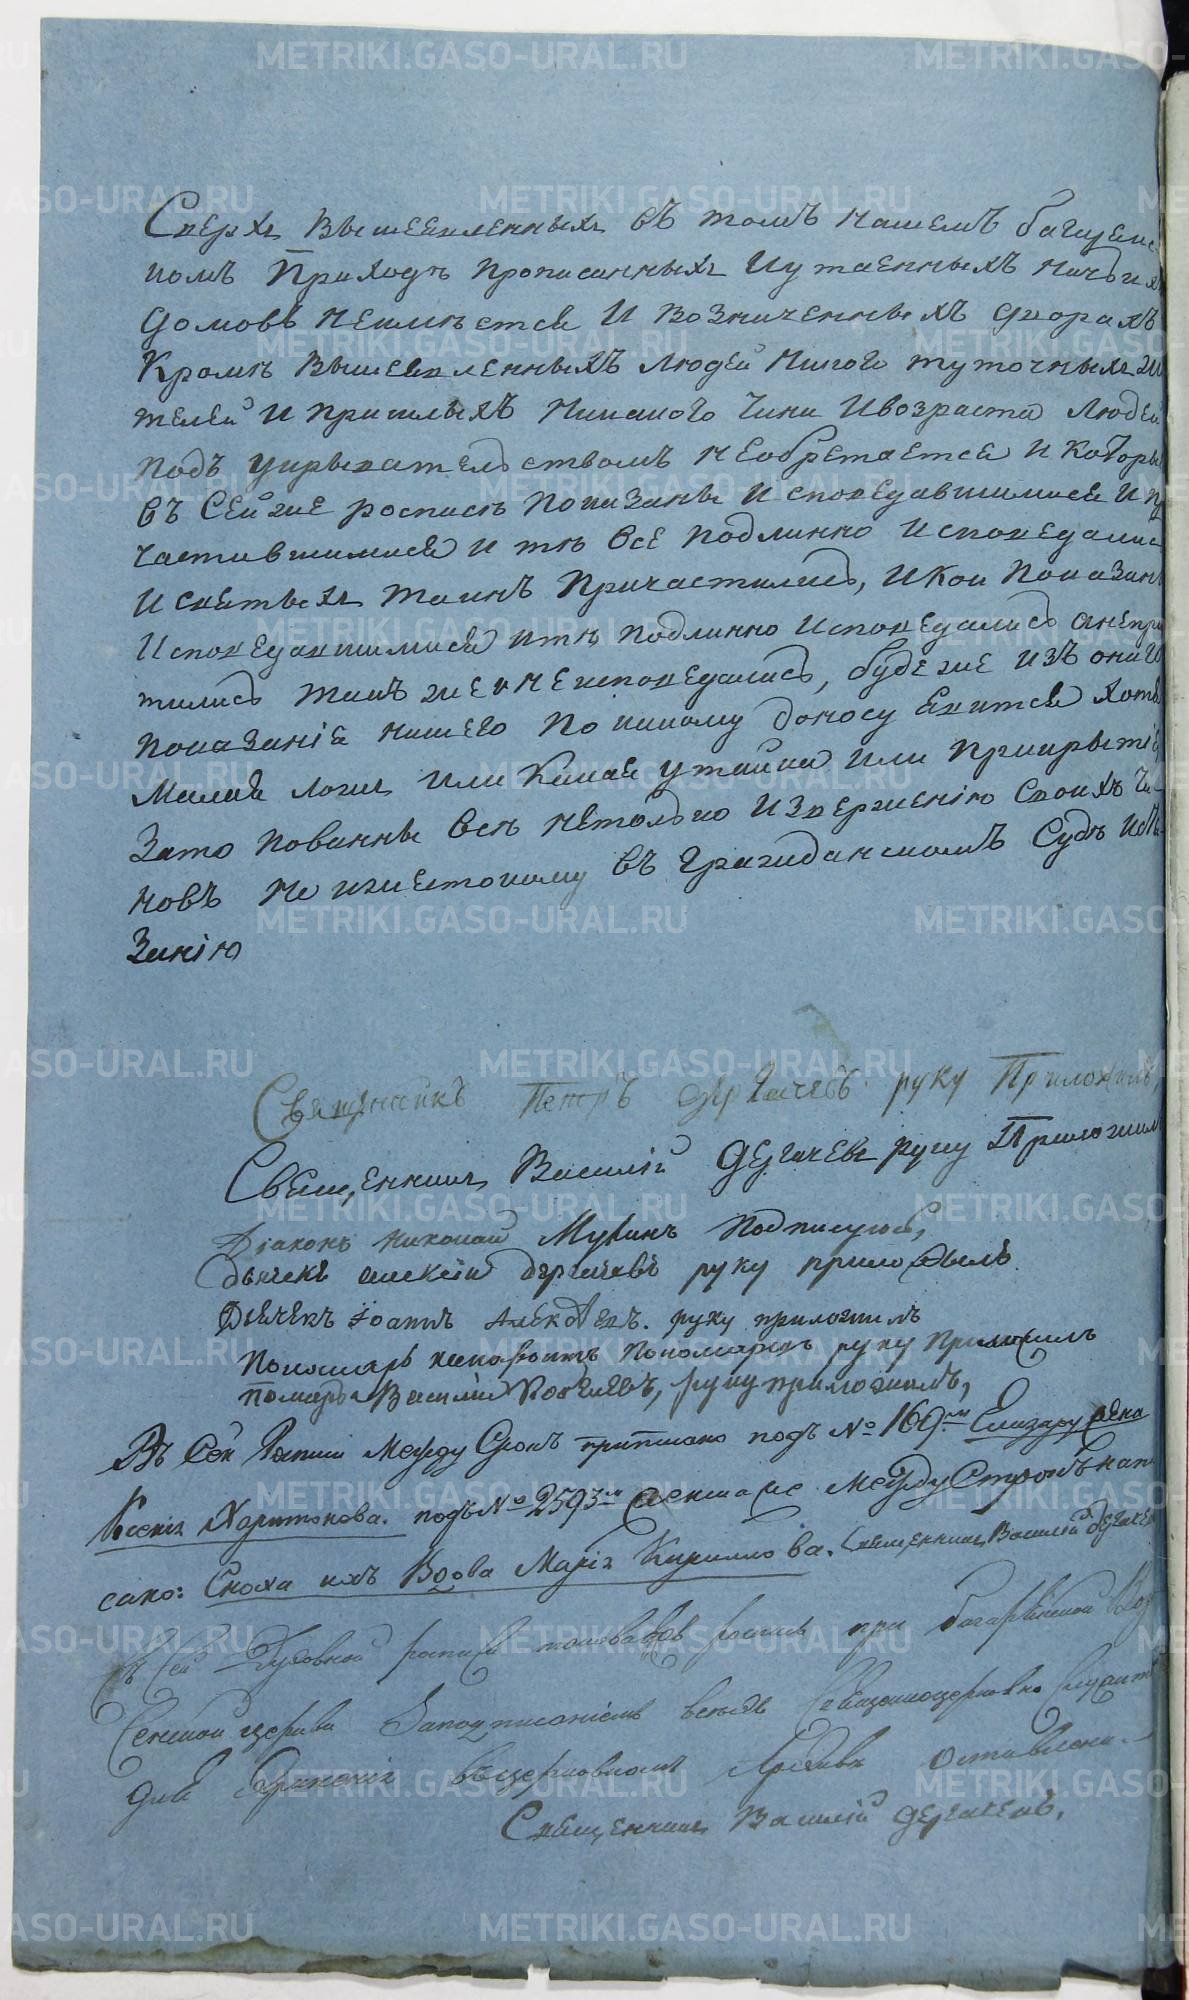 Сверхъ вышеявленныхъ въ томъ нашемъ багаряк
комъ Приходѣ прописанныхъ Иутаенныхъ Ничьихъ
домовъ неимѣется И возначенныхъ дворахъ
Кромѣ вышеявленныхъ людей Никого туточныхъ жи
телей И пришлыхъ Никакого чина Ивозраста людей
подъ укрывательствомъ необретается И Которы
въ Сей же росписѣ показаны Исповедавшимися И пр
частившимися и тѣ все подлинно Исповедались
И святыхъ таинъ Причастились, Икои показаны
Исповедавшимися итѣ подлинно Исповедались анепри
тились такъ же и неисповедались, буде же изъ онаго
показанія нашего по какому доносу явится хотя
малая ложь или Какая утайка или прикрытіе
Зато повинны всѣ нетолько Извержению своихъ чи
новъ но ижестокому въ гражданскомъ Судѣ нака
занію
Священникъ Петръ дергачевъ руку Приложилъ
Священникъ Василій дергачевъ руку Приложилъ
Діаконъ Николай Мухинъ подписуюсь,
дьячекъ алексій дергачевъ руку приложылъ
Дьячекъ Іоаннъ Алексѣевъ. руку приложилъ
пономарь Пономаревъ руку Приложилъ
помарь Василій руку приложилъ,
Въ Сей Росписи Между Строкъ приписано подъ № 169.мъ Елизару жена
Ксенія Харитонова. подъ № 2593мъ между Строкъ напи
сано: Сноха ихъ Вдова Марія Кириллова. Священникъ Василій дергачевъ
Въ Сей Духовной росписи таковажъ роспись при багаряцкой Воз
сенской церкви Заподписаніемъ всехъ Священноцерковно Служите
для храненія вцерковномъ Архивѣ оставлена.
Священникъ Василій дергачевъ.
METRIKI.GASO-URAL.RU